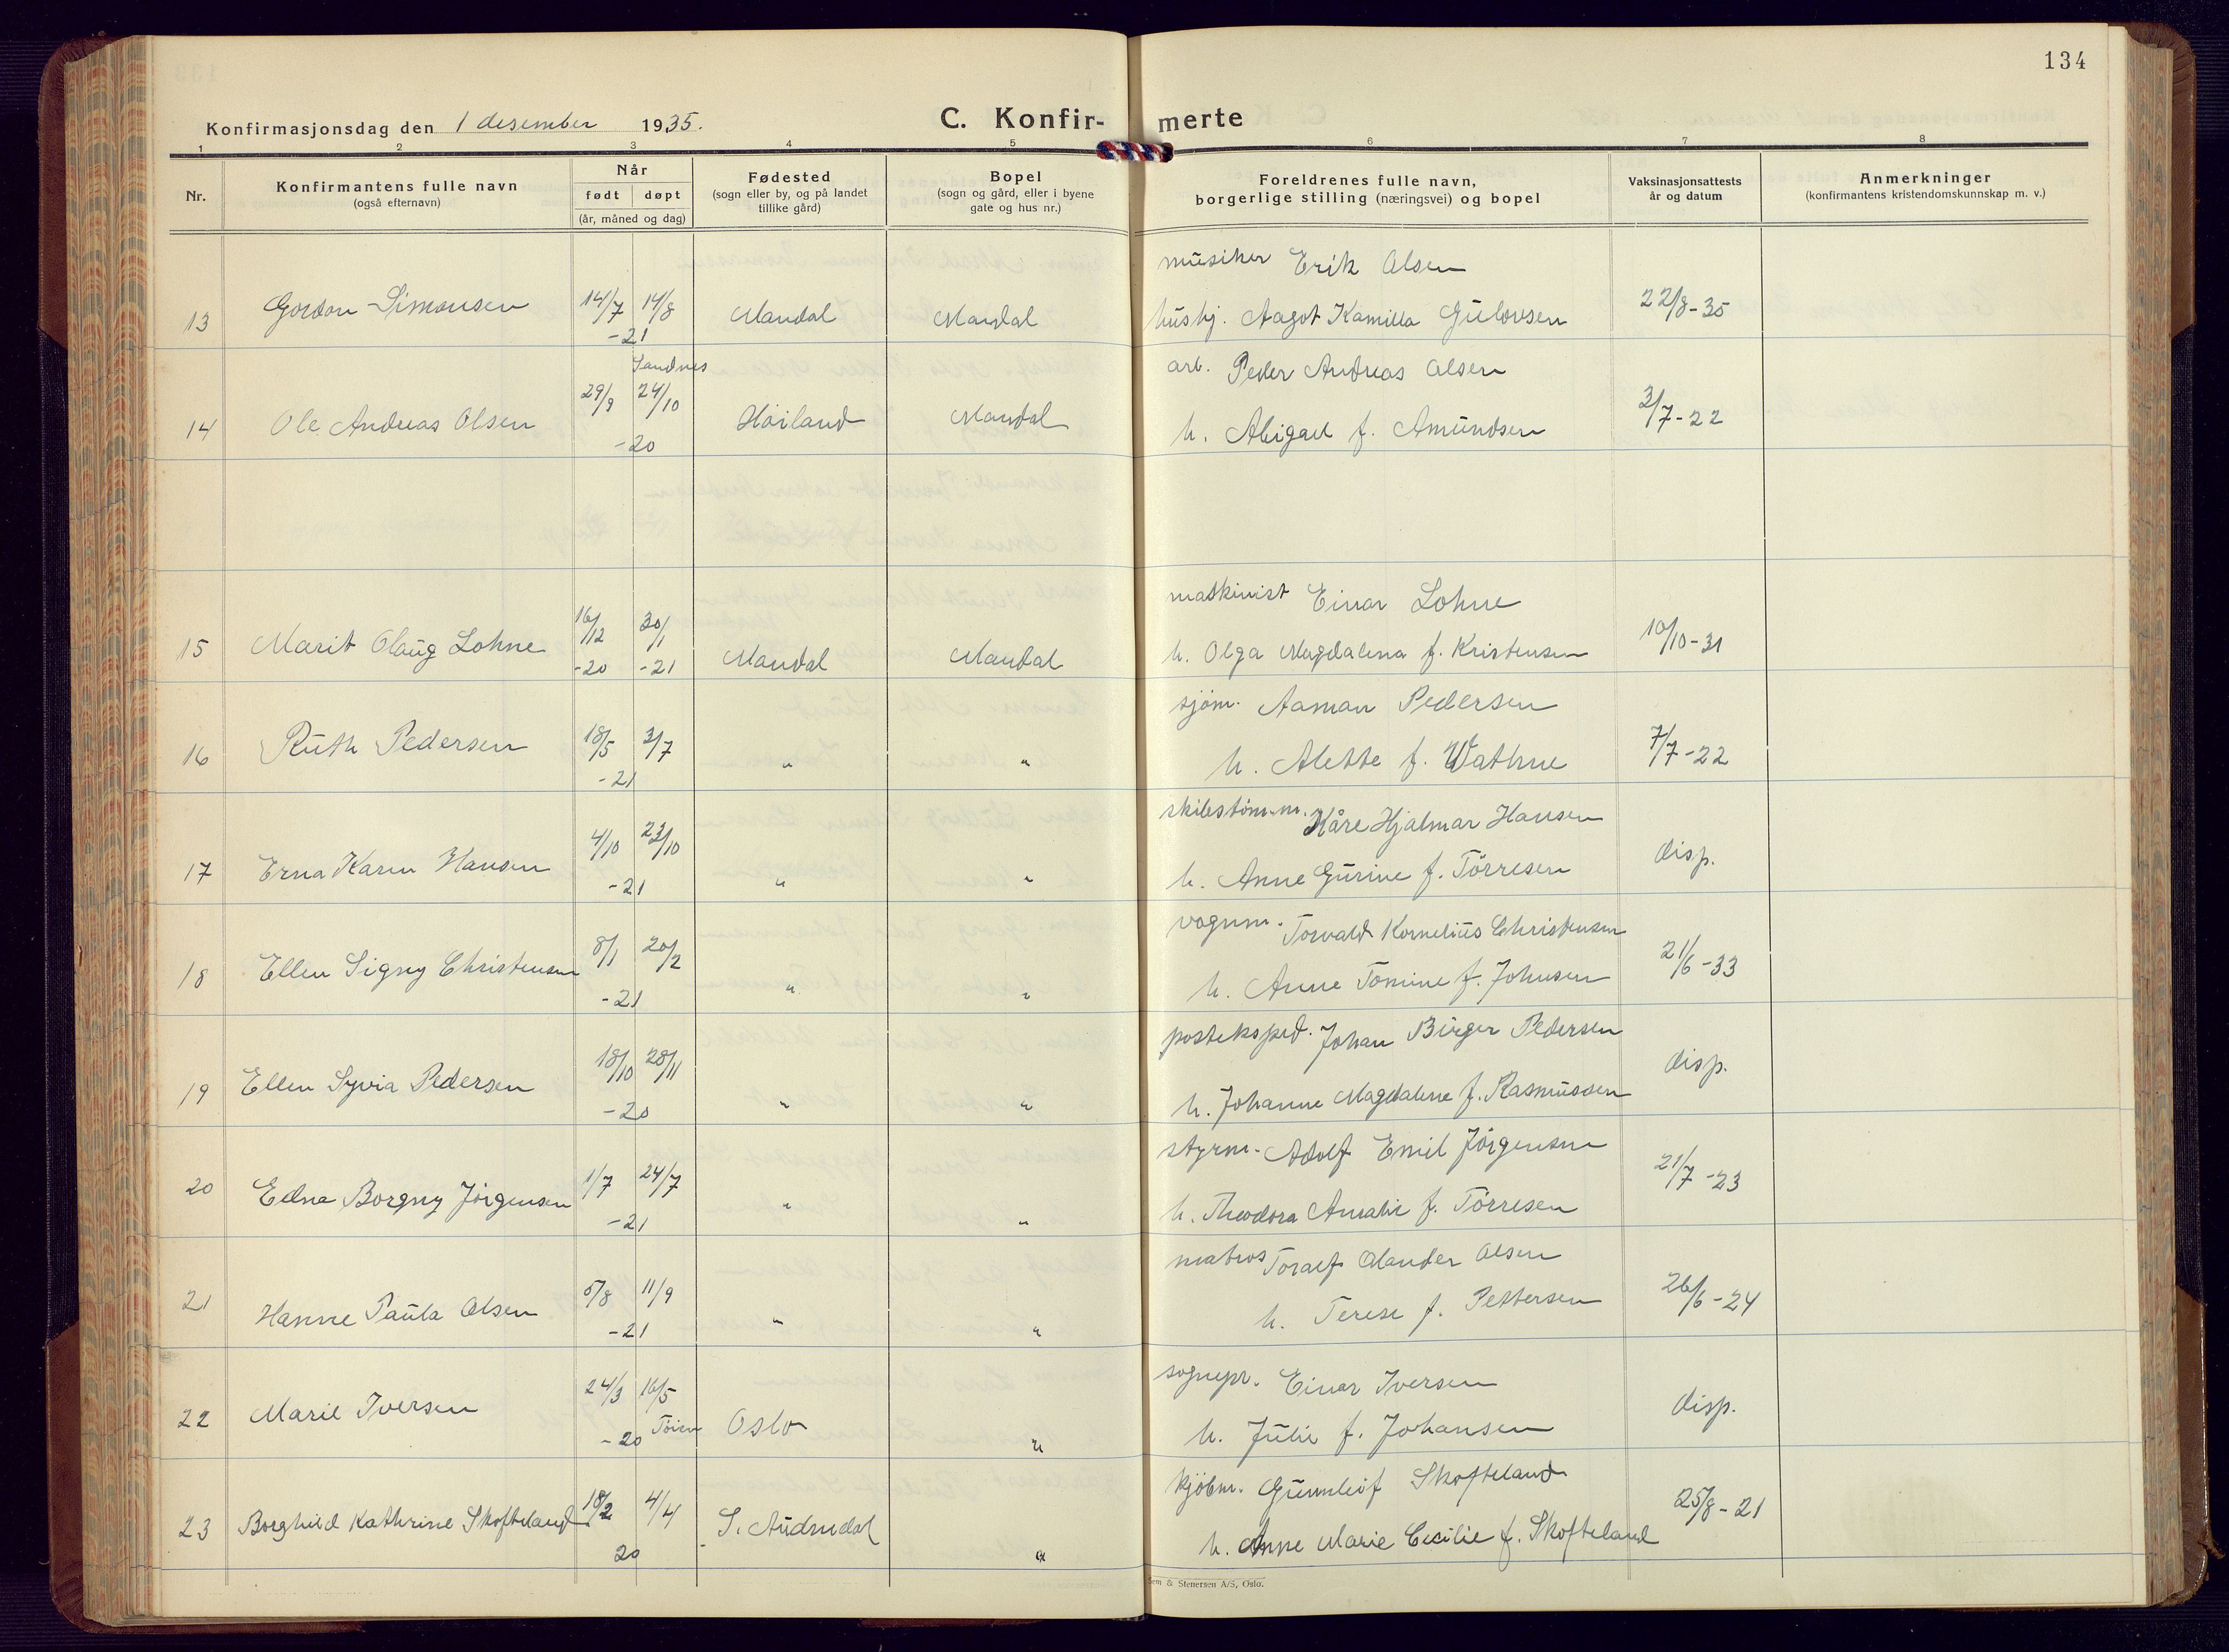 134
Konfirmasjonsdag den 1 desember 1935.
C. Konfir- merte
1 2 3 4 5 6 7 8
Nr.
Konfirmantens fulle navn
(også efternavn)
Når
født døpt
(år, måned og dag)
Fødested
(sogn eller by, og på landet
tillike gård)
Bopel
(sogn og gård, eller i byene
gate og hus nr.)
Foreldrenes fulle navn,
borgerlige stilling (næringsvei) og bopel
Vaksinasjonsattests
år og datum
Anmerkninger
(konfirmantens kristendomskunnskap m. v.)
musiker Erik Olsen
13 Gordon Simonsen 14/7 14/8 Mandal Mandal hushj. Aagot Kamilla Gulovsen 22/8-35
-21
Sandnes
arb. Peder Andreas Olsen
14 Ole Andreas Olsen 29/9 24/10 Höiland Mandal h. Abigael f. Amundsen 3/7-22
-20
maskinist Einar Lohne
15 Marit Olaug Lohne 16/12 30/1 Mandal Mandal h. Olga Magdalena f. Kristensen 10/10-31
-20 -21
sjöm. Aaman Pedersen
16 Ruth Pedersen 18/5 3/7 " " h. Alette f. Wathne 7/7-22
-21
skibstöm.m. Kåre Hjalmar Hansen
17 Erna Karen Hansen 4/10 23/10 " " h. Anne Gurine f. Törresen disp.
-21
vognm. Torvald Kornelius Christensen
18 Ellen Signy Christensen 8/1 20/2 " " h. Anne Tomine f. Johnsen 21/6-33
-21
posteksped. Johan Birger Pedersen
19 Ellen Syvia Pedersen 18/10 28/11 " " h. Johanne Magdalene f. Rasmussen disp.
-20
styrm. Adolf Emil Jörgensen
20 Edna Borgny Jörgensen 1/7 24/7 " " h. Theodora Amalie f. Törresen 21/7-23
-21
matros Toralf Olander Olsen
21 Hanne Paula Olsen 5/8 11/9 " " h. Terese f. Pettersen 26/6-24
-21
sognepr. Einar Iversen
22 Marie Iversen 24/3 16/5 Oslo " h. Julie f. Johansen disp.
-20 Töien
kjöbm. Gunnleif Skofteland
23 Borghild Kathrine Skofteland 18/2 4/4 S. Audnedal " h. Anne Marie Cecilie f. Skofteland 25/8-21
20
Sem & Stenersen A/S, Oslo.